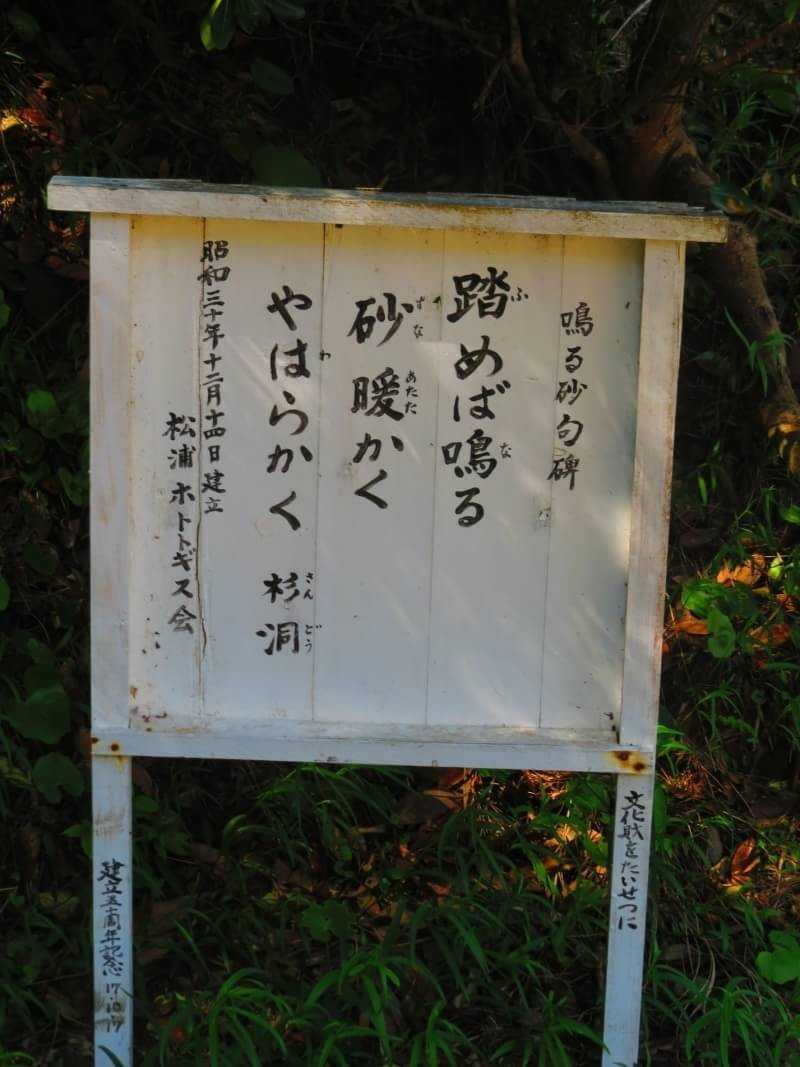 鳴る砂句碑
踏めば鳴る
ふ な
砂暖かく
すな あたた
やはらかく 杉洞
わ さんどう
昭和三十年十二月十四日建立
松浦ホトトギス会
文化財をたいせつに
建立五十周年記念 17.10